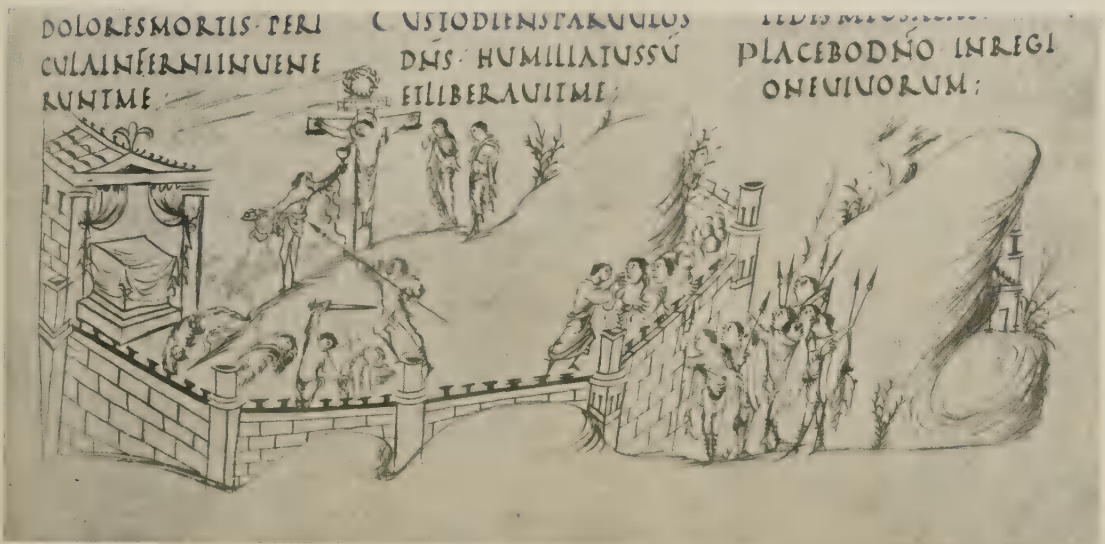 DOLORESMORTIS·PERI
CULAINFERNIINUENE
RUNTME
CUSTODIENSPARUULOS
DN̄S· HUMILIATUSSŪ
ETLIBERAUITME;
PLACEBODN̄O INREGI
ONEUIUORUM;